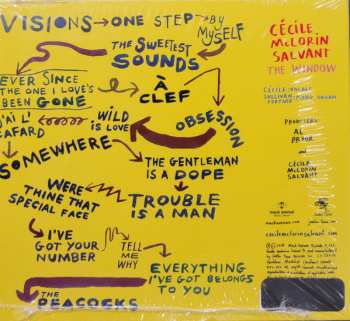 VISIONS
ONE STEP
BY
MYSELF
THE SWEETEST
SOUNDS
EVER SINCE
THE ONE I LOVE'S
BEEN GONE
À
CLEF
J'AI L'
CAFARD
WILD
IS LOVE
OBSESSION
SOMEWHERE
THE GENTLEMAN
IS A DOPE
WERE
THINE THAT
SPECIAL FACE
TROUBLE
IS A MAN
I'VE
GOT YOUR
NUMBER
TELL
ME
WHY
EVERYTHING
I'VE GOT BELONGS
TO YOU
THE
PEACOCKS
CÉCILE
McLORIN
SALVANT
THE WINDOW
CÉCILE VOCALS
SULLIVAN PIANO ORGAN
FORTNER
PRODUCERS
AL
PRYOR
AND
CÉCILE
McLORIN
SALVANT
cecilemclorinsalvant.com